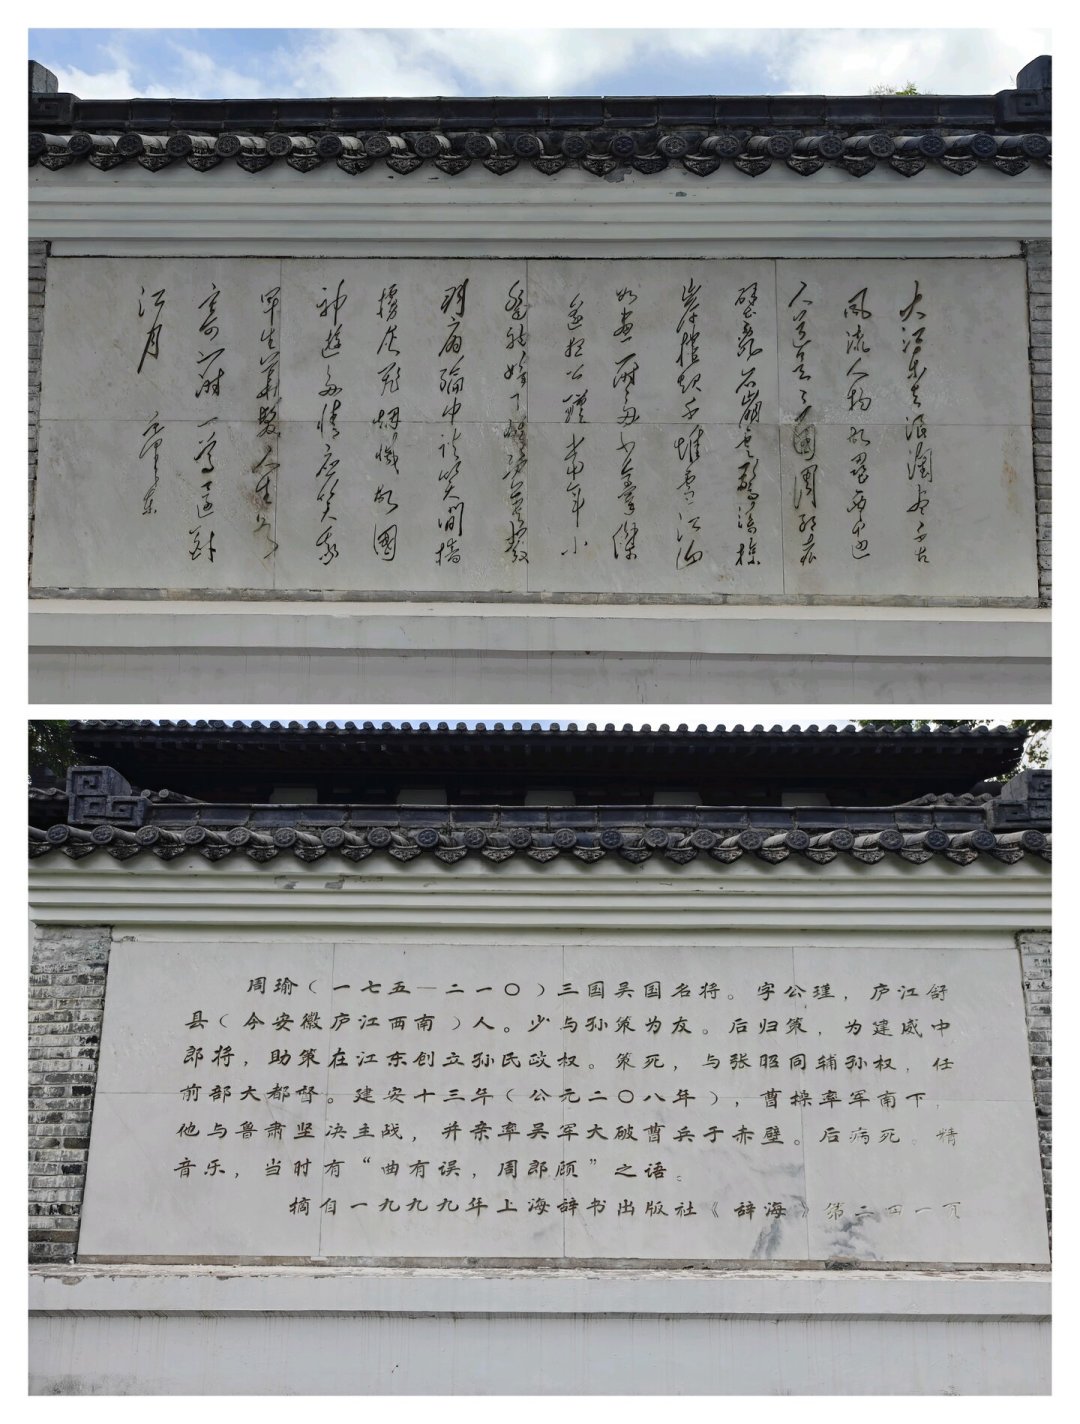 大江东去浪淘尽千古
风流人物故垒西边
人道是三国周郎赤
壁乱石崩云惊涛掠
岸捲起千堆雪江山
如画一时多少豪傑
遥想公瑾当年小
乔初嫁了雄姿英发
羽扇纶巾谈笑间樯
橹灰飞烟灭故國
神遊多情应笑我
早生華髮人生
一尊還酹
江月
毛泽东
周瑜(一七五—二一〇)三国吴国名将。字公瑾,庐江舒
县(今安徽庐江西南)人。少与孙策为友。后归策,为建威中
郎将,助策在江东创立孙氏政权。策死,与张昭同辅孙权,任
前部大都督。建安十三年(公元二〇八年),曹操率军南下,
他与鲁肃坚决主战,并亲率吴军大破曹兵于赤壁。后病死。精
音乐,当时有“曲有误,周郎顾”之语。
摘自一九九九年上海辞书出版社《辞海》第二四一页